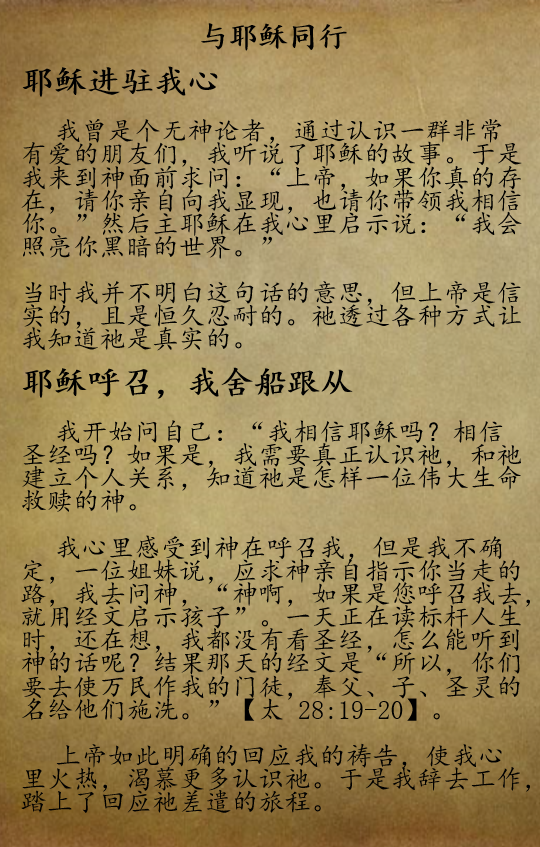 与耶稣同行
耶稣进驻我心
我曾是个无神论者，通过认识一群非常
有爱的朋友们，我听说了耶稣的故事。于是
我来到神面前求问：“上帝，如果你真的存
在，请你亲自向我显现，也请你带领我相信
你。”然后主耶稣在我心里启示说：“我会
照亮你黑暗的世界。”
当时我并不明白这句话的意思，但上帝是信
实的，且是恒久忍耐的。祂透过各种方式让
我知道祂是真实的。
耶稣呼召，我舍船跟从
我开始问自己：“我相信耶稣吗？相信
圣经吗？如果是，我需要真正认识祂，和祂
建立个人关系，知道祂是怎样一位伟大生命
救赎的神。
我心里感受到神在呼召我，但是我不确
定，一位姐妹说，应求神亲自指示你当走的
路，我去问神，“神啊，如果是您呼召我去，
就用经文启示孩子”。一天正在读标杆人生
时，还在想，我都没有看圣经，怎么能听到
神的话呢？结果那天的经文是“所以，你们
要去使万民作我的门徒，奉父、子、圣灵的
名给他们施洗。”【太 28:19-20】。
上帝如此明确的回应我的祷告，使我心
里火热，渴慕更多认识祂。于是我辞去工作，
踏上了回应祂差遣的旅程。